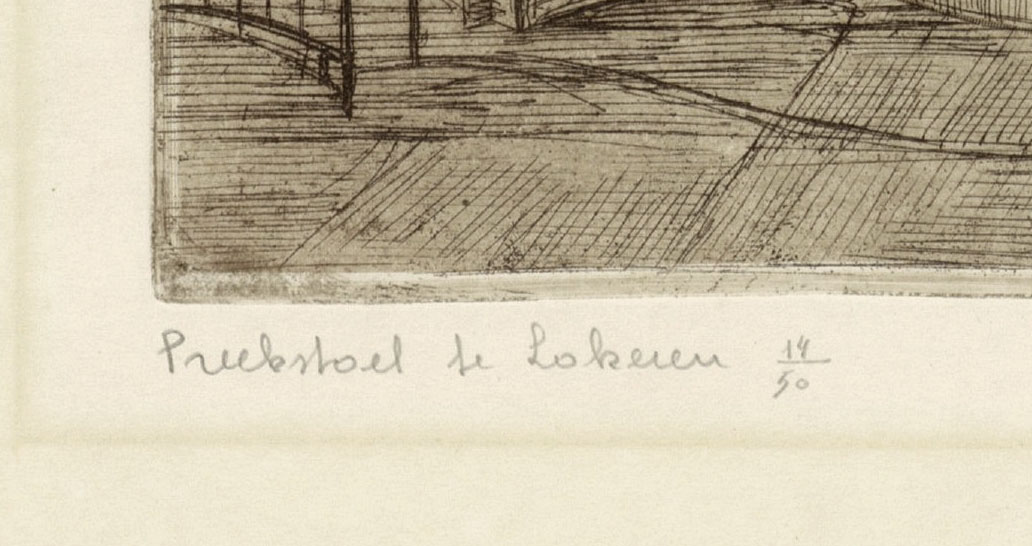 Preekstoel te Lokeren 14/50